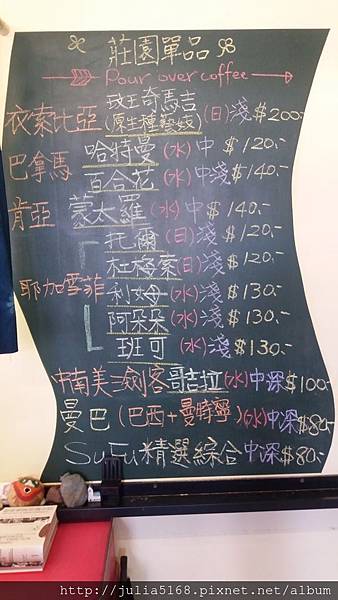 莊園單品
Pour over coffee
衣索比亞 玫瑰奇馬吉
(原生種藝妓) (日) 淺 $200
巴拿馬 哈特曼 (水) 中 $120.-
百合花 (水) 中淺 $140.-
肯亞 蒙太羅 (水) 中 $140.-
托爾 (日) 淺 $120.-
杜梅索 (日) 淺 $120.-
耶加雪菲 利姆 (水) 淺 $130.-
阿朵朵 (水) 淺 $130.-
班可 (水) 淺 $130.-
中南美三劍客 哥吉拉 (水) 中深 $100.-
曼巴 (巴西+曼特寧) (水) 中深 $80.-
SuFu精選綜合 中深 $80.-
http://julia5168.pixnet.net/album